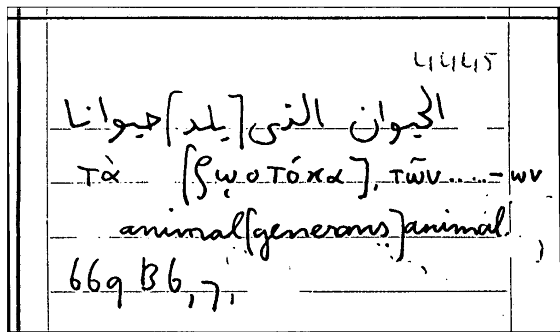 4445
الحيوان الذى [يلد] حيوانا
τὰ [ζῳοτόκα], τῶν.....-ων
animal [generans] animal.
669 B6,7,